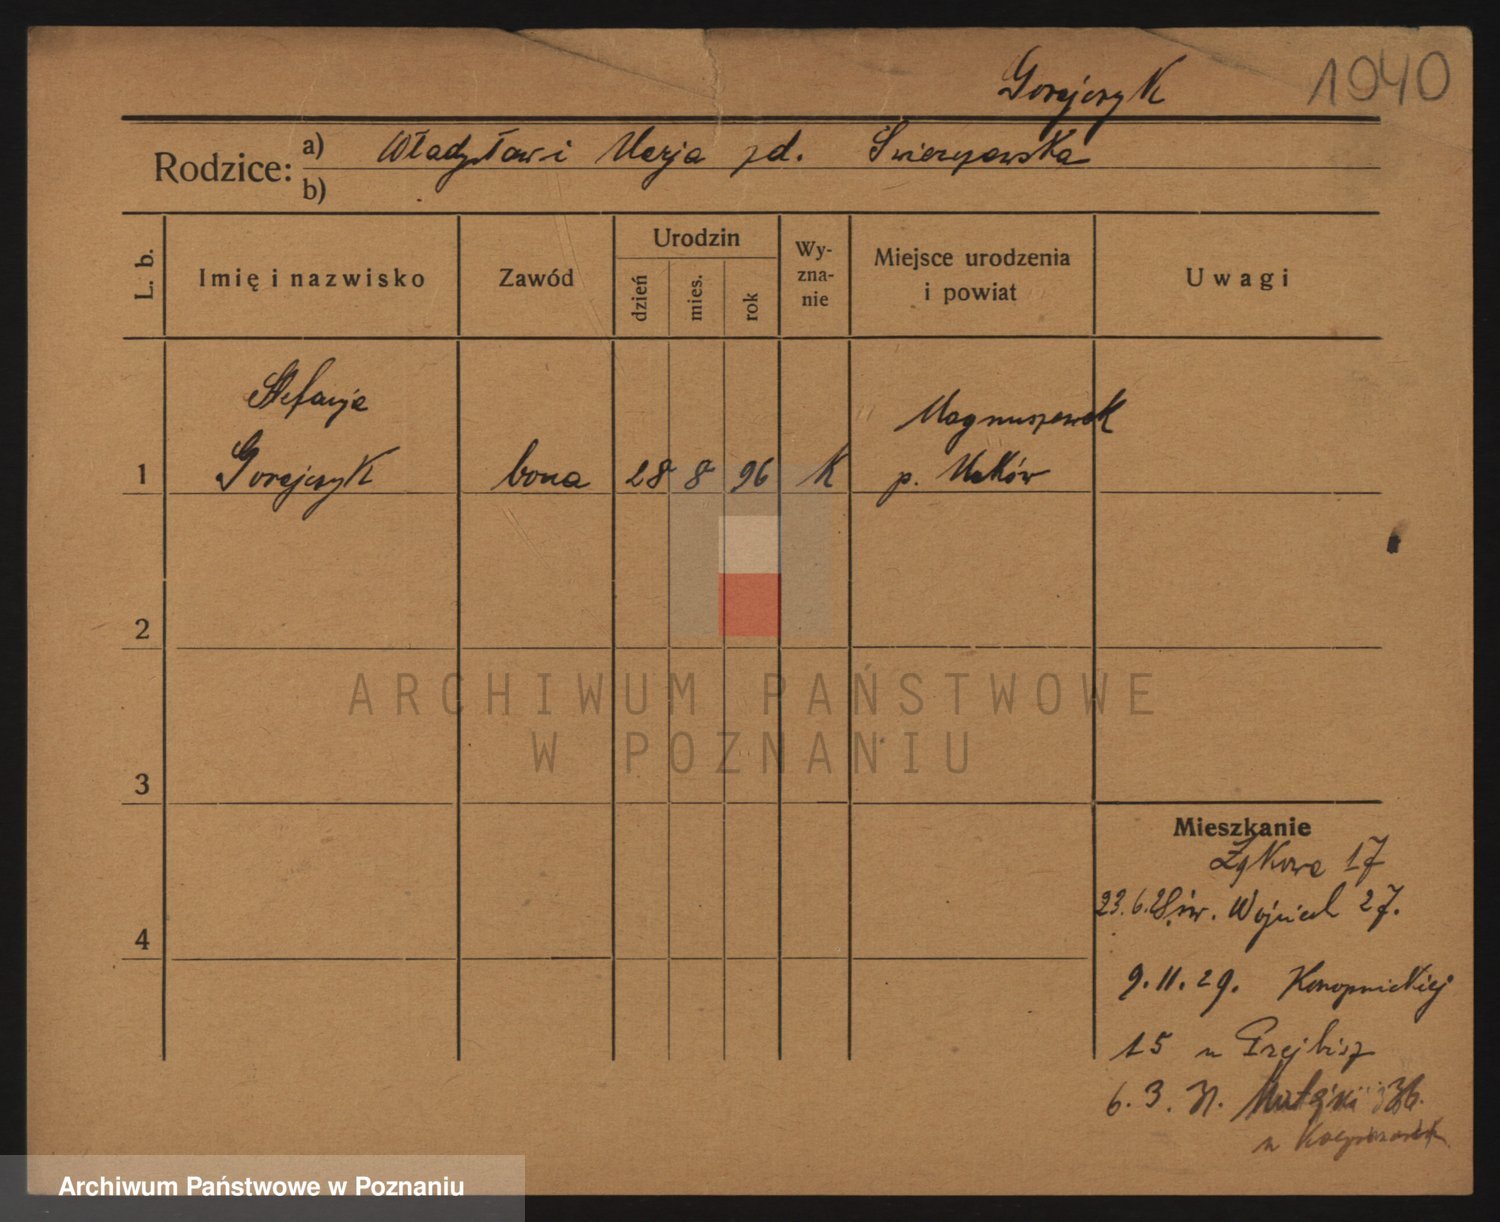 Gorejczyk 1940
Rodzice: a) Władysław i Marja zd.
b)
L. b.
Imię i nazwisko
Zawód
Urodzin
dzień
mies.
rok
Wy-
zna-
nie
Miejsce urodzenia
i powiat
Uwagi
Stefanja
Gorejczyk
1
bona
28 8 96
K
Magnuszewek
p. Maków
2
ARCHIWUM PAŃSTWOWE
W POZNANIU
3
4
Mieszkanie
Żykowa 17
23.6.28 św. Wojciech 27.
9.11.29. Konopnickiej
15 u
6.3.31. Matejki 36.
u
Archiwum Państwowe w Poznaniu